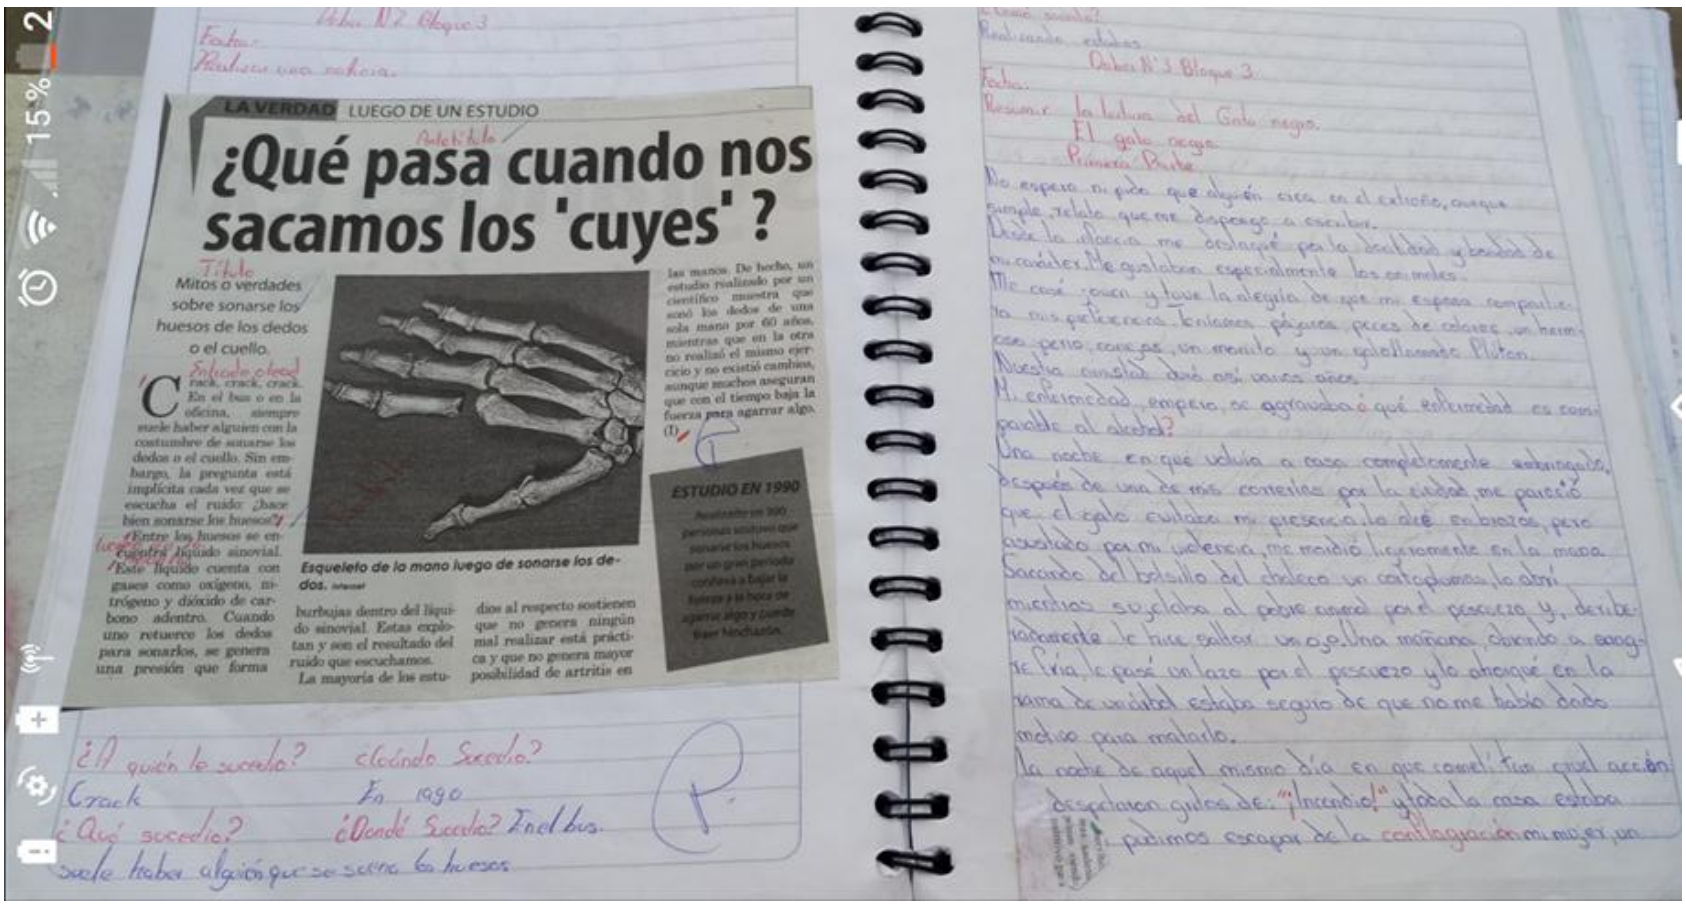 15% 2
Deber N 2 Bloque 3
Fecha:
Realizar una noticia.
LA VERDAD LUEGO DE UN ESTUDIO
Antetítulo
¿Qué pasa cuando nos
sacamos los 'cuyes' ?
Título
Mitos o verdades
sobre sonarse los
huesos de los dedos
o el cuello.
Entrada o lead
Crack, crack, crack.
En el bus o en la
oficina, siempre
suele haber alguien con la
costumbre de sonarse los
dedos o el cuello. Sin em-
bargo, la pregunta está
implícita cada vez que se
escucha el ruido: ¿hace
bien sonarse los huesos?
Entre los huesos se en-
cuentra líquido sinovial.
Este líquido cuenta con
gases como oxígeno, ni-
trógeno y dióxido de car-
bono adentro. Cuando
uno retuerce los dedos
para sonarlos, se genera
una presión que forma
Esqueleto de la mano luego de sonarse los de-
dos. Internet
burbujas dentro del líqui-
do sinovial. Estas explo-
tan y son el resultado del
ruido que escuchamos.
La mayoría de los estu-
dios al respecto sostienen
que no genera ningún
mal realizar está prácti-
ca y que no genera mayor
posibilidad de artritis en
las manos. De hecho, un
estudio realizado por un
científico muestra que
sonó los dedos de una
sola mano por 60 años,
mientras que en la otra
no realizó el mismo ejer-
cicio y no existió cambios,
aunque muchos aseguran
que con el tiempo baja la
fuerza para agarrar algo.
(I)
ESTUDIO EN 1990
Realizado en 300
personas sostuvo que
sonarse los huesos
por un gran periodo
conlleva a bajar la
fuerza a la hora de
agarrar algo y puede
traer hinchazón.
¿A quién le sucedio? ¿Cuándo Sucedio?
Crack En 1990
¿Qué sucedio? ¿Dondé Sucedio? En el bus.
suele haber alguién que se suena los huesos
Realizando estudios
Deber N°3 Bloque 3
Fecha:
Resumir la lectura del Gato negro.
El gato negro
Primera Parte
No espero ni pido que alguién crea en el extraño, aunque
simple relato que me dispongo a escribir.
Desde la infancia me destaqué por la docilidad y bondad de
mi carácter. Me gustaban especialmente los animales.
Me casé joven y tuve la alegría de que mi esposa compartie-
ra mis preferencia. Teníamos pájaros, peces de colores, un herm-
oso perro, conejos, un monito y un gato llamado Plutón.
Nuestra amistad duró así varios años.
Mi enfermedad, empero, se agravaba ó qué enfermedad es com-
parable al alcohol?
Una noche en que volvía a casa completamente embriagado,
después de una de mis correrías por la ciudad, me pareció
que el gato evitaba mi presencia, lo alcé en brazos, pero
asustado por mi violencia, me mordió ligeramente en la mano
Sacando del bolsillo del chaleco un cortaplumas, lo abrí
mientras sujetaba al pobre animal por el pescuezo y, delibe-
radamente le hice saltar un ojo. Una mañana, obrando a sang-
re fría, le pasé un lazo por el pescuezo y lo ahorqué en la
rama de un árbol estaba seguro de que no me había dado
motivo para matarlo.
La noche de aquel mismo día en que cometí tan cruel acción
despetaron gritos de: "¡Incendio!" y toda la casa estaba
pudimos escapar de la conflagración mi mujer, un